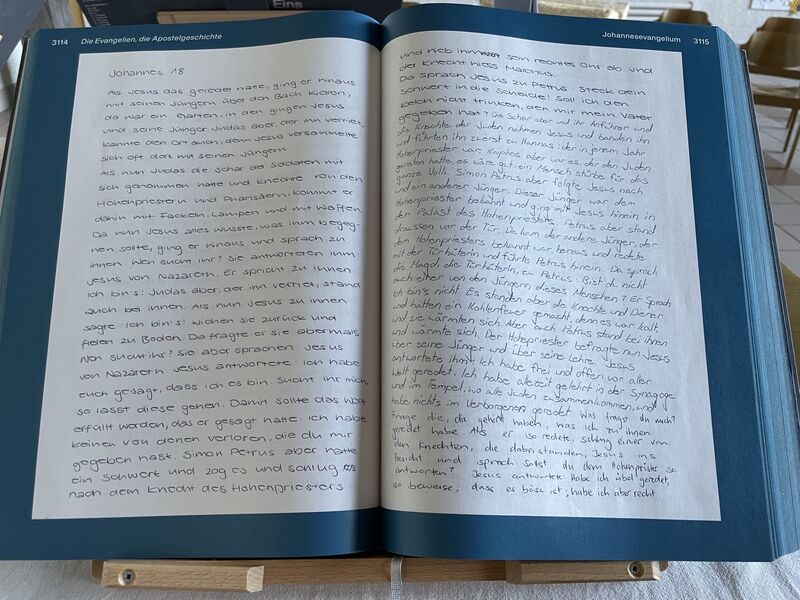 Eins
3114 Die Evangelien, die Apostelgeschichte
Johannes 18
Als Jesus das geredet hatte, ging er hinaus
mit seinen Jüngern über den Bach Kidron,
da war ein Garten, in den gingen Jesus
und seine Jünger. Judas aber, der ihn verriet,
kannte den Ort auch, denn Jesus versammelte
sich oft dort mit seinen Jüngern.
Als nun Judas die Schar der Soldaten mit
sich genommen hatte und Knechte von den
Hohenpriestern und Pharisäern, kommt er
dahin mit Fackeln, Lampen und mit Waffen.
Da nun Jesus alles wusste, was ihm begeg-
nen sollte, ging er hinaus und sprach zu
ihnen: Wen sucht ihr? Sie antworteten ihm
Jesus von Nazareth. Er spricht zu ihnen:
Ich bin's! Judas aber, der ihn verriet, stand
auch bei ihnen. Als nun Jesus zu ihnen
sagte: Ich bin's! wichen sie zurück und
fielen zu Boden. Da fragte er sie abermals:
Wen sucht ihr? Sie aber sprachen: Jesus
von Nazareth. Jesus antwortete: Ich habe
euch gesagt, dass ich es bin. Sucht ihr mich,
so lasst diese gehen. Damit sollte das Wort
erfüllt werden, das er gesagt hatte: Ich habe
keinen von denen verloren, die du mir
gegeben hast. Simon Petrus aber hatte
ein Schwert und zog es und schlug
nach dem Knecht des Hohenpriesters
Johannesevangelium 3115
und hieb ihm sein rechtes Ohr ab. Und
der Knecht hieß Malchus.
Da sprach Jesus zu Petrus: Steck dein
Schwert in die Scheide! Soll ich den
Kelch nicht trinken, den mir mein Vater
gegeben hat? Die Schar aber und ihr Anführer und
die Knechte der Juden nahmen Jesus und banden ihn
und führten ihn zuerst zu Hannas; der in jenem Jahr
Hohepriester war. Kaiphas aber war es, der den Juden
geraten hatte, es wäre gut, ein Mensch stürbe für das
ganze Volk. Simon Petrus aber folgte Jesus nach
und ein anderer Jünger. Dieser Jünger war dem
Hohenpriester bekannt und ging mit Jesus hinein in
den Palast des Hohenpriesters. Petrus aber stand
draussen vor der Tür. Da kam der andere Jünger, der
dem Hohenpriesters bekannt war heraus und redete
mit der Türhüterin und führte Petrus hinein. Da sprach
die Magd, die Türhüterin, zu Petrus: Bist du nicht
auch einer von den Jüngern dieses Menschen? Er sprach:
Ich bin's nicht. Es standen aber die Knechte und Diener
und hatten ein Kohlenfeuer gemacht, denn es war kalt,
und sie wärmten sich. Aber auch Petrus stand bei ihnen
und wärmte sich. Der Hohepriester befragte nun Jesus
über seine Jünger und über seine Lehre. Jesus
antwortete ihm: Ich habe frei und offen vor aller
Welt geredet. Ich habe allezeit gelehrt in der Synagoge
und im Tempel, wo alle Juden zusammenkommen, und
habe nichts im Verborgenen geredet. Was fragst du mich?
Frage die, die gehört haben, was ich zu ihnen
geredet habe. Als er so redete, schlug einer von
den Knechten, die dabeistanden, Jesus ins
Gesicht und sprach: Sollst du dem Hohenpriester so
antworten? Jesus antwortete: Habe ich übel geredet,
so beweise, dass es böse ist; habe ich aber recht